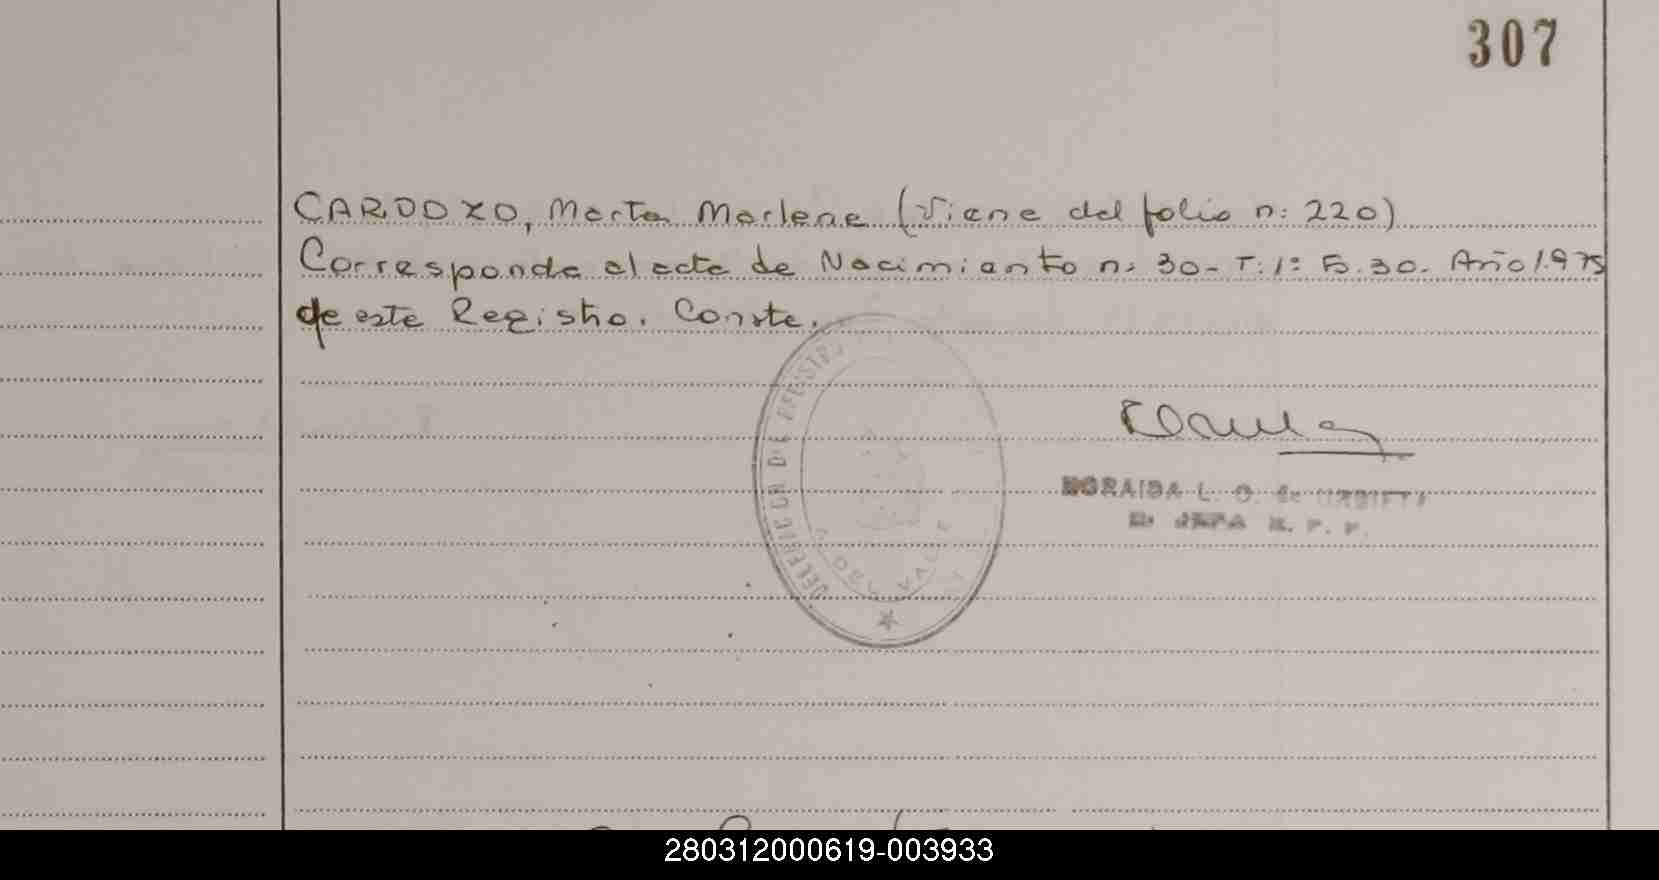 307
CARDOZO, Marta Marlene (Viene del folio n: 220)
Corresponde al acta de Nacimiento n: 30- T: 1º F. 30. Año 1.975
de este Registro. Conste.
DELEGACION DE REGISTRO
NORAIDA L. O. de
JEFA R. P. P.
280312000619-003933